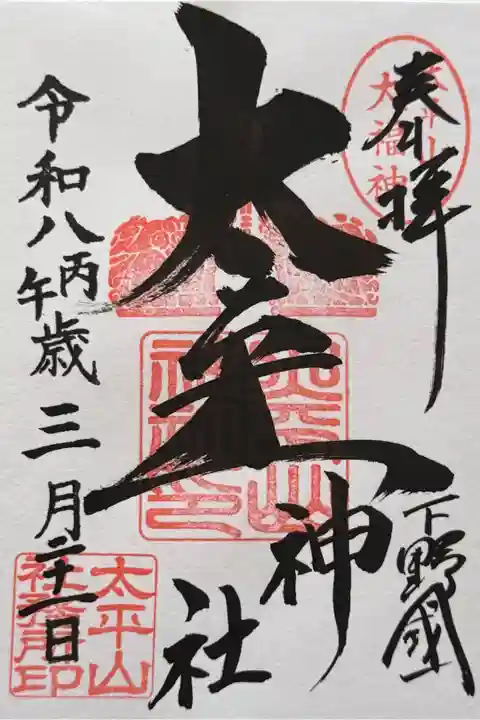 奉拝
太平山
大福神
下野國
太平山神社
令和八丙午歳三月二十一日
太平山
社務所印